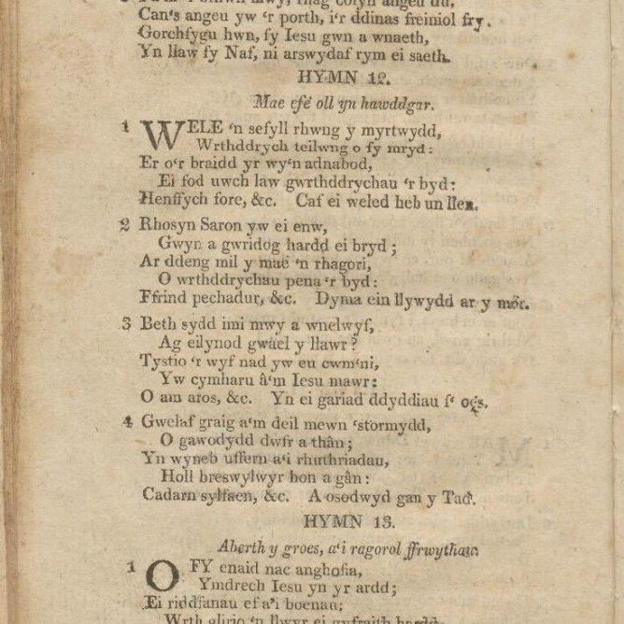 Can's angeu yw 'r porth, i'r ddinas freiniol fry.
Gorchfygu hwn, fy Iesu gwn a wnaeth,
Yn llaw fy Naf, ni arswydaf rym ei saeth.
HYMN 12.
Mae efe oll yn hawddgar.
1 WELE 'n sefyll rhwng y myrtwydd,
Wrthddrych teilwng o fy mryd:
Er o'r braidd yr wy'n adnabod,
Ei fod uwch law gwrthddrychau 'r byd:
Henffych fore, &c. Caf ei weled heb un llen.
2 Rhosyn Saron yw ei enw,
Gwyn a gwridog hardd ei bryd;
Ar ddeng mil y mae 'n rhagori,
O wrthddrychau pena 'r byd:
Ffrind pechadur, &c. Dyma ein llywydd ar y môr.
3 Beth sydd imi mwy a wnelwyf,
Ag eilynod gwael y llawr?
Tystio 'r wyf nad yw eu cwm'ni,
Yw cymharu â'm Iesu mawr:
O am aros, &c. Yn ei gariad ddyddiau f' oes.
4 Gwelaf graig a'm deil mewn 'stormydd,
O gawodydd dwfr a thân;
Yn wyneb uffern a'i rhuthriadau,
Holl breswylwyr hon a gân:
Cadarn sylfaen, &c. A osodwyd gan y Tad.
HYMN 13.
Aberth y groes, a'i ragorol ffrwythau.
1 O FY enaid nac anghofia,
Ymdrech Iesu yn yr ardd;
Ei riddfanau ef a'i boenau;
Wrth glirio 'n llwyr ei gyfraith hardd.